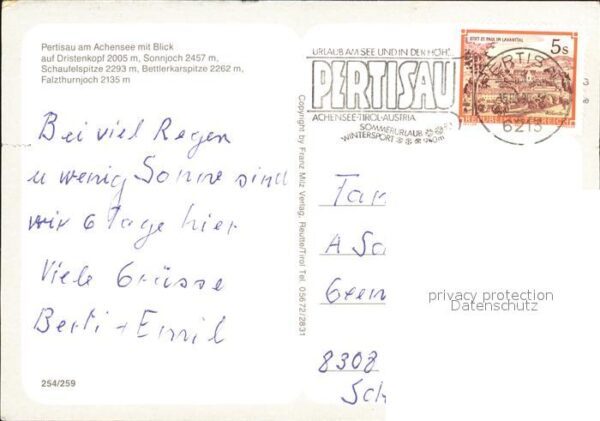 Pertisau am Achensee mit Blick
auf Dristenkopf 2005 m, Sonnjoch 2457 m,
Schaufelspitze 2293 m, Bettlerkarspitze 2262 m,
Falzthurnjoch 2135 m
Bei viel Regen
u wenig Sonne sind
wir 6 Tage hier
Viele Grüsse
Berti + Emil
254/259
Copyright by Franz Milz Verlag, Reutte/Tirol Tel. 05672/2831
URLAUB AM SEE UND IN DER HÖH'
PERTISAU
ACHENSEE-TIROL-AUSTRIA
SOMMERURLAUB
WINTERSPORT
STIFT ST. PAUL IM LAVANTTAL
5 S
REPUBLIK ÖSTERREICH
PERTIS
6213
Tan
A So
Gren
8308
Sch
privacy protection
Datenschutz